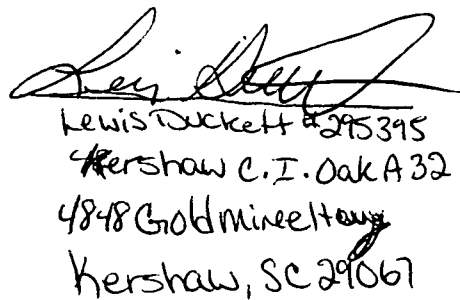 Lewis Duckett #295395
Kershaw C.I. Oak A 32
4848 Goldmine Hwy
Kershaw, SC 29067